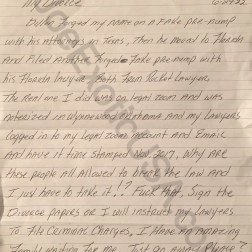 My Divorce
Dulos forged my name on a Fake pre-nump
with his Attorneys in Texas, Then he moved to Florida
And Filed Another Forged Fake pre-nump with
his Florida lawyer. Both From Pocket Lawyer
The Real one I did was on legal zoom and was
notorized in Wynnewood Oklahoma and my Lawyers
logged in to my Legal Zoom Account and Email
and have it time stamped Nov. 2017, Why are
these people all allowed to break the law and
I just have to take it!? Fuck that, Sign the
Divorce papers or I will instruct my Lawyers
To File Criminal Charges, I Have an amazing
waiting For me. Just an away